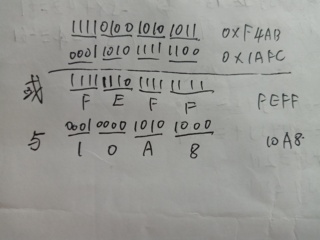 1111 0100 1010 1011 0xF4AB
0001 1010 1111 1100 0x1AFC
或 1111 1110 1111 1111
F E F F FEFF
与 0001 0000 1010 1000
1 0 A 8 10A8